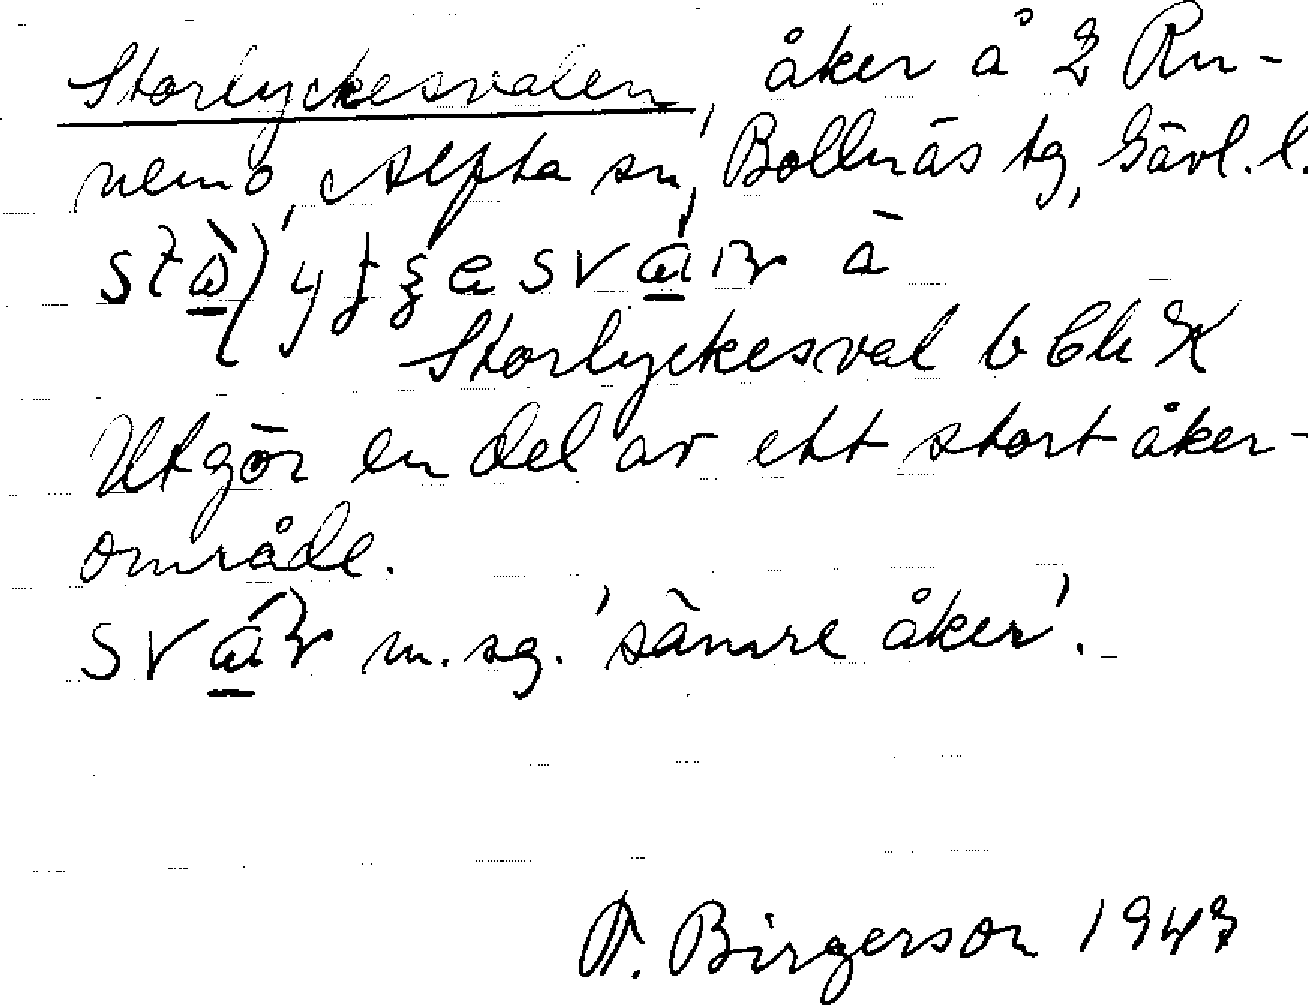 Storlyckesvalen, åker å 2 Run-
nemo, Alfta sn, Bollnäs tg, Gävl. l.
å
Storlyckesval
Utgör en del av ett stort åker-
område.
m. sg. 'sämre åker'.
Birgerson 1947